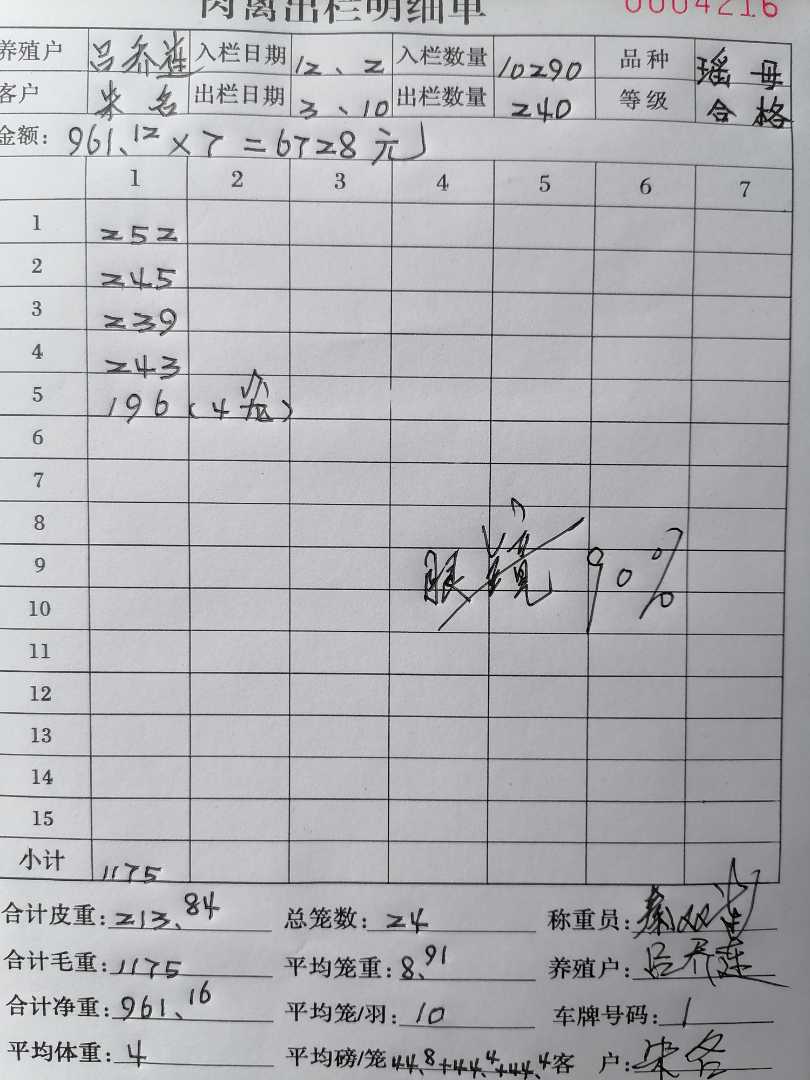 肉禽出栏明细单 0004216
养殖户 吕乔莲 入栏日期 12、2 入栏数量 10290 品种 瑶母
客户 朱名 出栏日期 3、10 出栏数量 240 等级 合格
金额: 961.12×7=6728元
1 2 3 4 5 6 7
1 252
2 245
3 239
4 243
5 196(4笼)
6
7
8
9 眼镜90%
10
11
12
13
14
15
小计 1175
合计皮重: 213.84 总笼数: 24 称重员:
合计毛重: 1175 平均笼重: 8.91 养殖户: 吕乔莲
合计净重: 961.16 平均笼/羽: 10 车牌号码: 1
平均体重: 4 平均磅/笼 44.8+44.4+44.4 客 户: 朱名